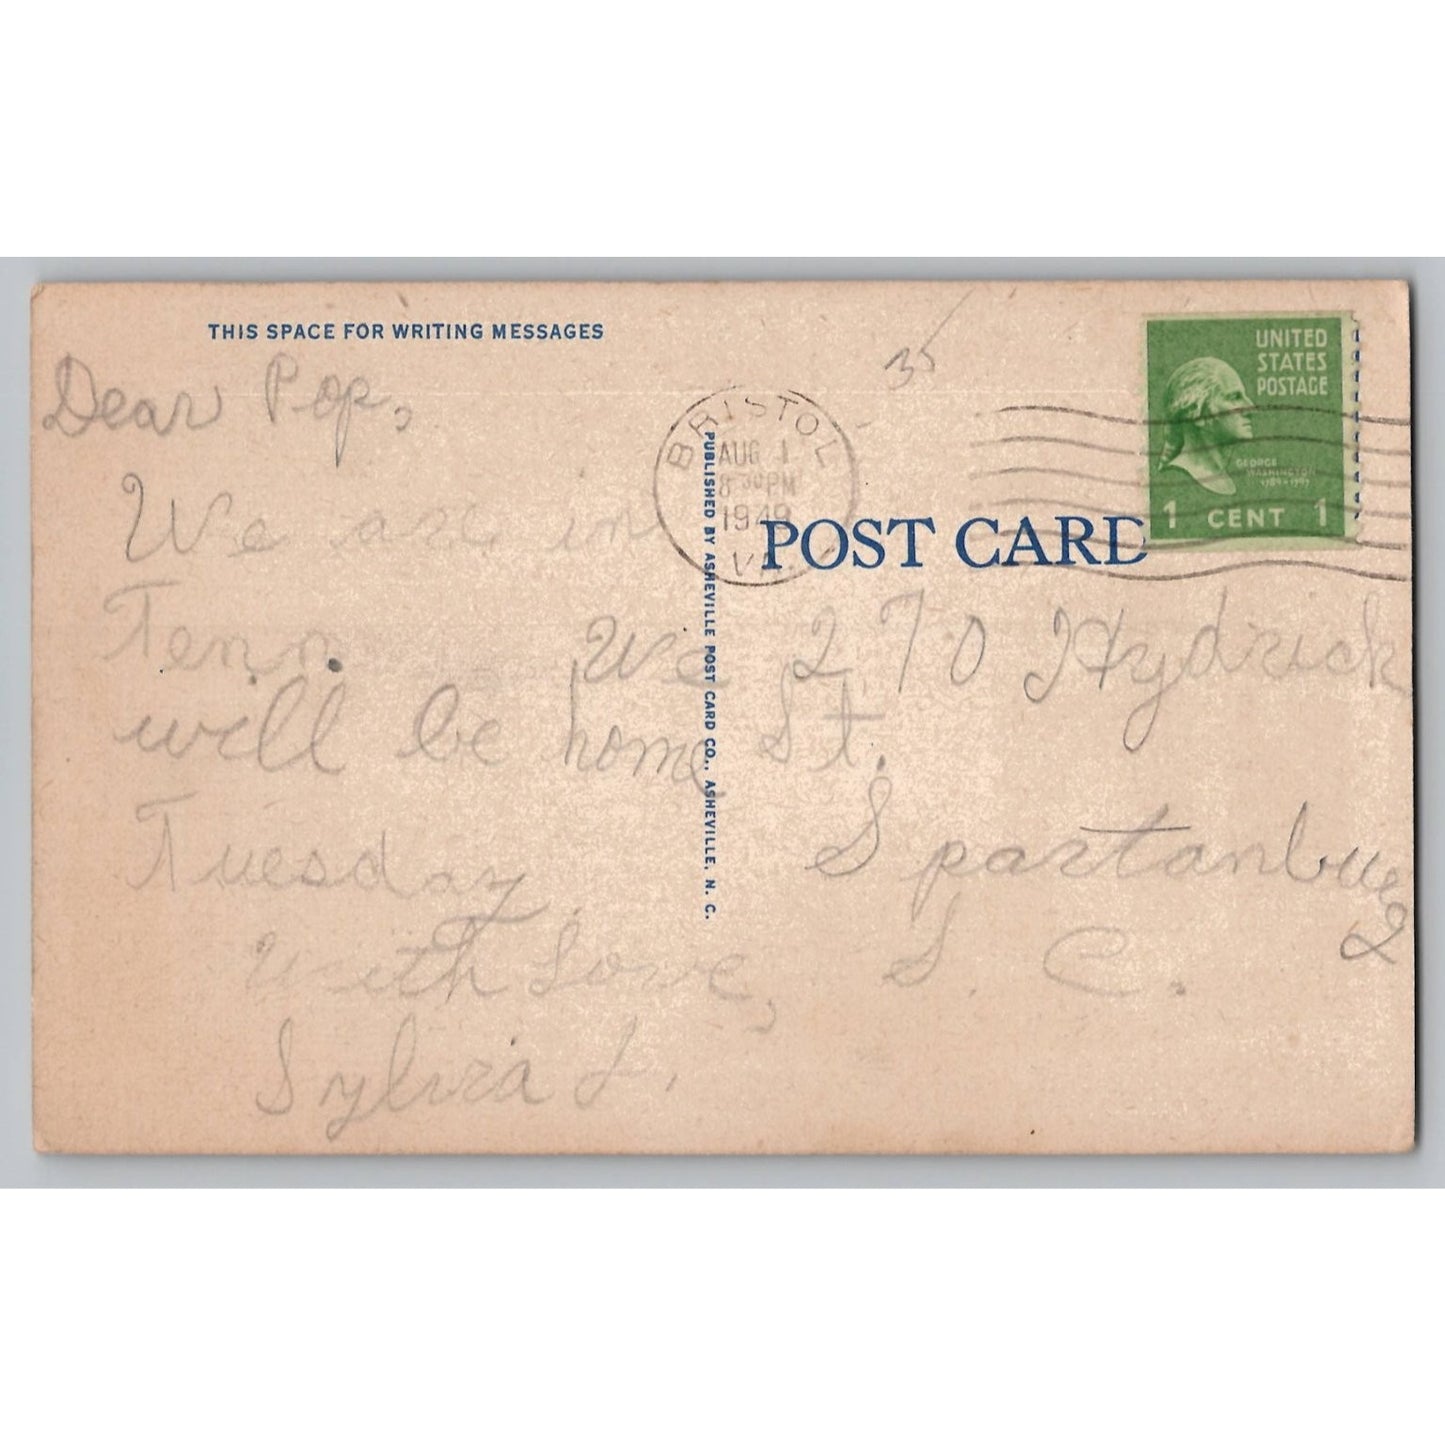 THIS SPACE FOR WRITING MESSAGES
Dear Pop,
We are in
Tenn. We
will be home
Tuesday
With Love,
Sylvia L.
PUBLISHED BY ASHEVILLE POST CARD CO., ASHEVILLE, N. C.
35
BRISTOL
AUG 1
8 30 PM
1949
VA.
POST CARD
UNITED
STATES
POSTAGE
GEORGE
WASHINGTON
1789-1797
1 CENT 1
270 Hydrick
St.
Spartanburg
S. C.